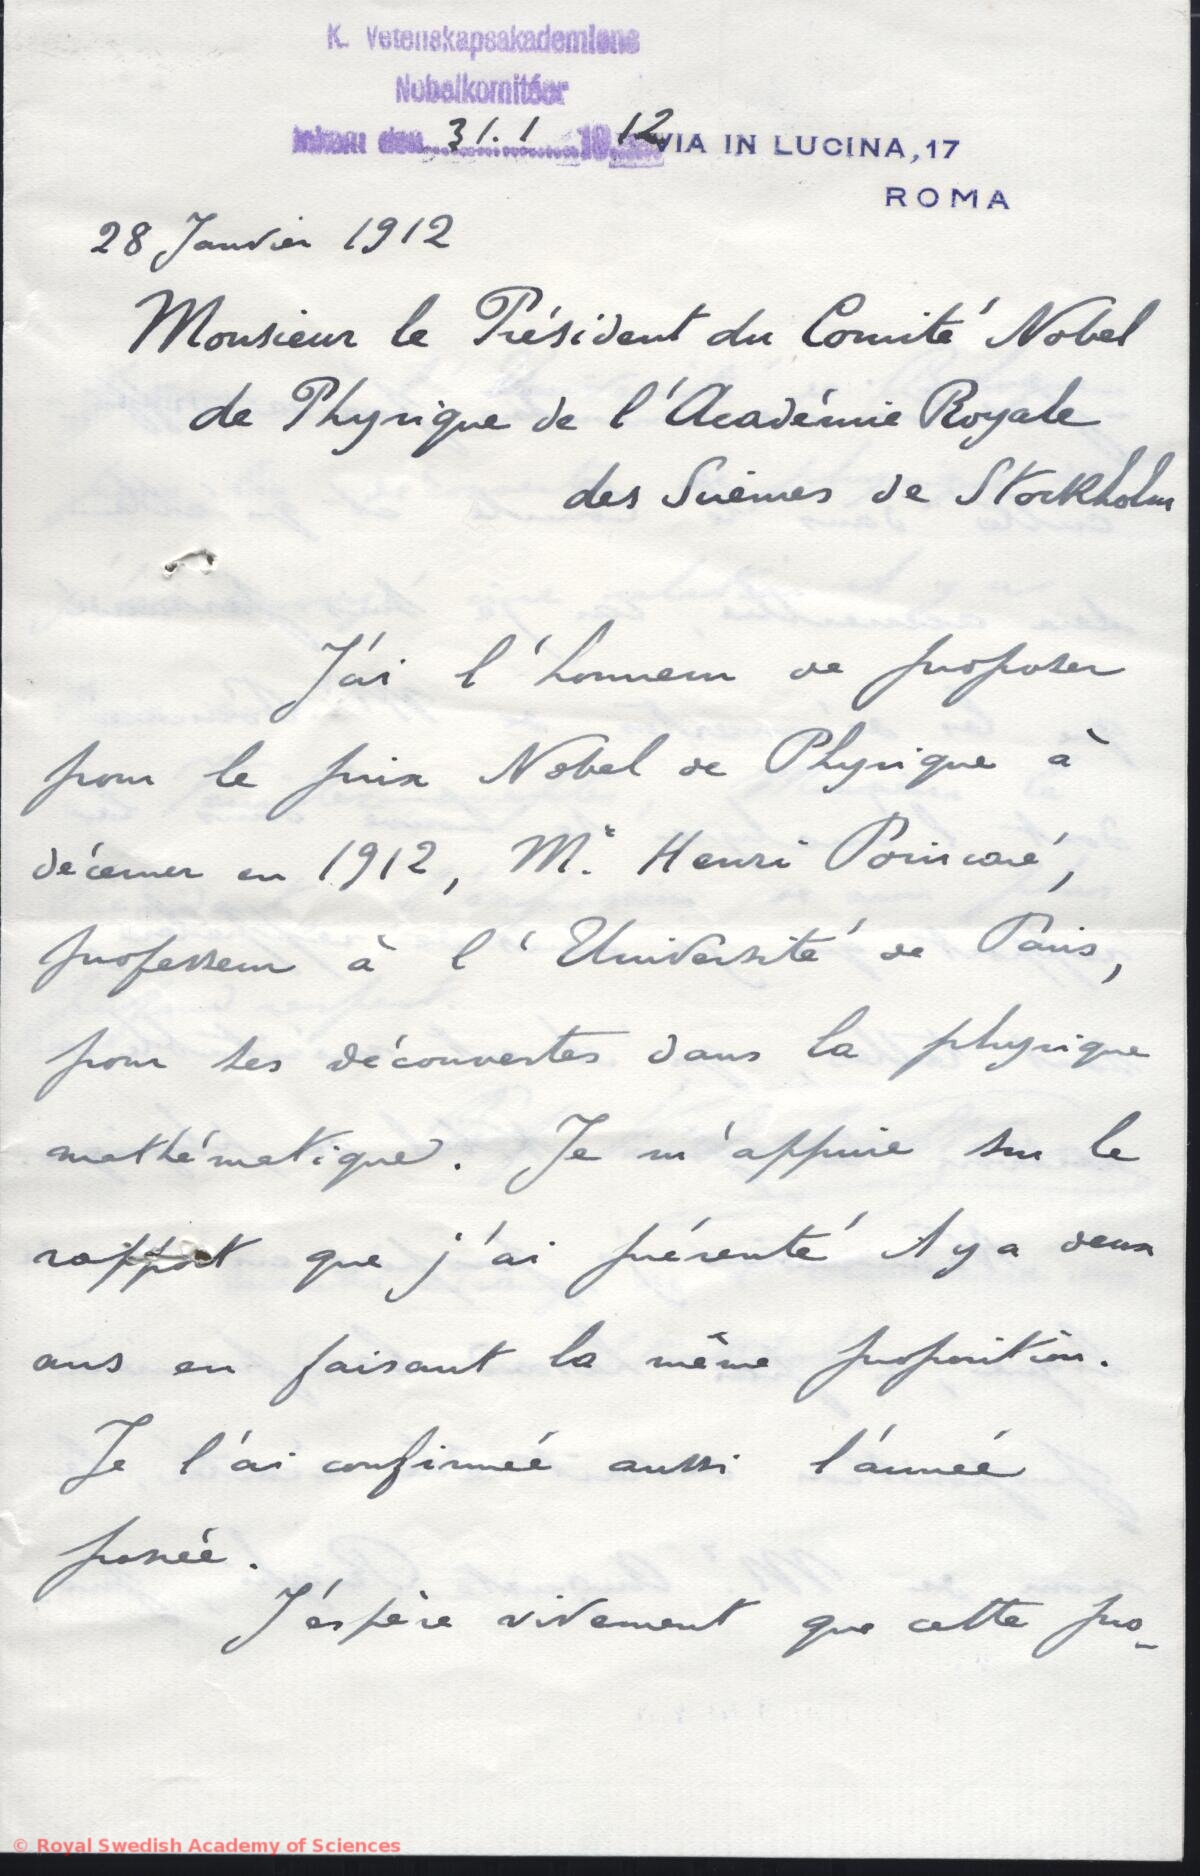 K. Vetenskapsakademiens
Nobelkomitéer
Inkom den 31.1 1912
VIA IN LUCINA, 17
ROMA
28 Janvier 1912
Monsieur le Président du Comité Nobel
de Physique de l'Académie Royale
des Sciences de Stockholm
J'ai l'honneur de proposer
pour le prix Nobel de Physique à
décerner en 1912, Mr. Henri Poincaré,
professeur à l'Université de Paris,
pour ses découvertes dans la physique
mathématique. Je m'appuie sur le
rapport que j'ai présenté il y a deux
ans en faisant la même proposition.
Je l'ai confirmée aussi l'année
passée.
J'éspère vivement que cette pro-
© Royal Swedish Academy of Sciences